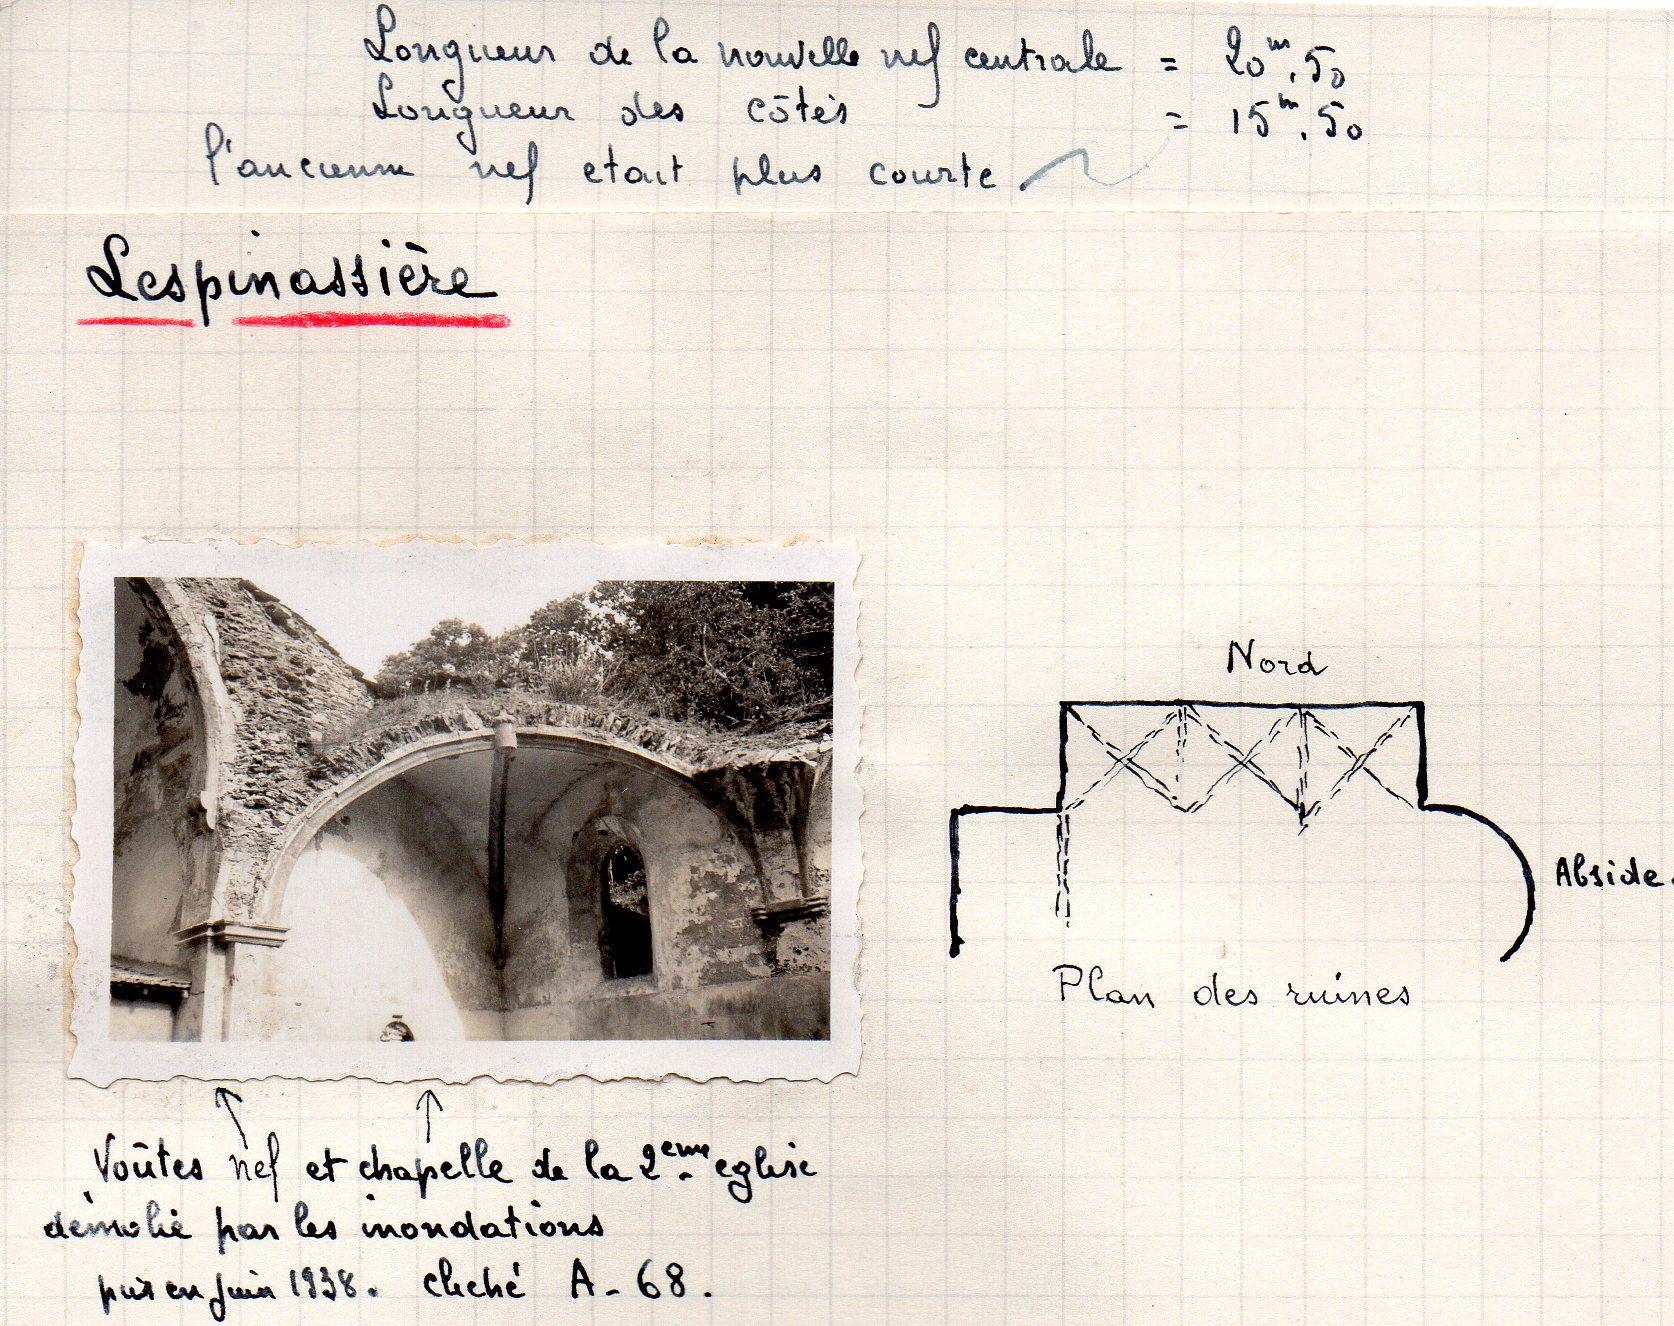 Longueur de la nouvelle nef centrale = 20m.50
Longueur des côtés = 15m.50
l'ancienne nef etait plus courte
Lespinassière
Nord
Abside.
Plan des ruines
Voûtes nef et chapelle de la 2eme eglise
démolie par les inondations
pris en Juin 1938. cliché A-68.